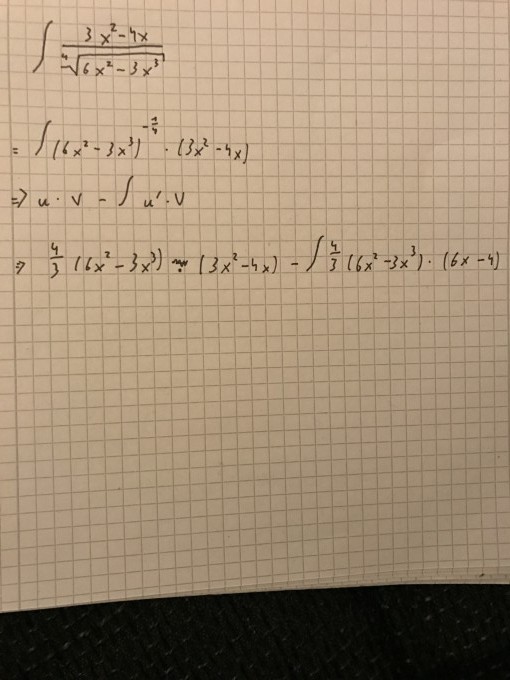 ∫ (3x² - 4x) / ⁴√(6x² - 3x³)
= ∫ (6x² - 3x³)^(-1/4) · (3x² - 4x)
⇒ u · v - ∫ u' · v
⇒ 4/3 (6x² - 3x³) · (3x² - 4x) - ∫ 4/3 (6x² - 3x³) · (6x - 4)